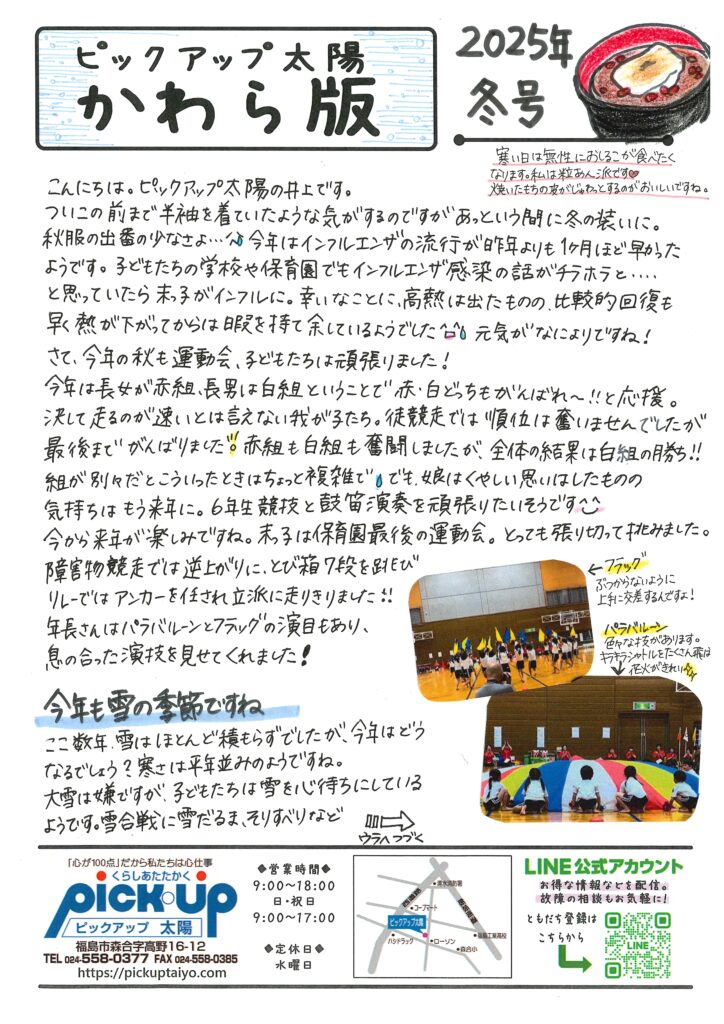 ピックアップ太陽
かわら版
2025年
冬号
寒い日は無性におしるこが食べたく
なります。私は粒あん派です♥
焼いたもちの皮がじゅわっとするのがおいしいですね。
こんにちは。ピックアップ太陽の井上です。
ついこの前まで半袖を着ていたような気がするのですがあっという間に冬の装いに。
秋服の出番の少なさよ…今年はインフルエンザの流行が昨年よりも1ヶ月ほど早かった
ようです。子どもたちの学校や保育園でもインフルエンザ感染の話がチラホラと‥‥
と思っていたら末っ子がインフルに。幸いなことに、高熱は出たものの、比較的回復も
早く熱が下がってからは暇を持て余しているようでした^^ 元気がなによりですね！
さて、今年の秋も運動会、子どもたちは頑張りました！
今年は長女が赤組、長男は白組ということで 赤・白どっちもがんばれ〜!!と応援。
決して走るのが速いとは言えない我が子たち。徒競走では順位は奮いませんでしたが
最後までがんばりました！赤組も白組も奮闘しましたが、全体の結果は白組の勝ち!!
組が別々だとこういったときはちょっと複雑で でも、娘はくやしい思いはしたものの
気持ちはもう来年に。6年生競技と鼓笛演奏を頑張りたいそうです^^
今から来年が楽しみですね。末っ子は保育園最後の運動会。とっても張り切って挑みました。
障害物競走では逆上がりに、とび箱7段を跳び
リレーではアンカーを任され立派に走りきりました!!
年長さんはパラバルーンとフラッグの演目もあり、
息の合った演技を見せてくれました！
←フラッグ
ぶつからないように
上手に交差するんですよ！
パラバルーン
色々な技があります。
キラキラシャトルをたくさん飛ばす
花火がきれい☆
今年も雪の季節ですね
ここ数年、雪はほとんど積もらずでしたが、今年はどう
なるでしょう？寒さは平年並みのようですね。
大雪は嫌ですが、子どもたちは雪を心待ちにしている
ようです。雪合戦に雪だるま、そりすべりなど
ウラへつづく
「心が100点」だから私たちは心仕事
くらしあたたかく
PICK・UP
ピックアップ 太陽
福島市森合字高野16-12
TEL 024-558-0377 FAX 024-558-0385
https://pickuptaiyo.com
◆営業時間◆
9:00〜18:00
日・祝日
9:00〜17:00
◆定休日◆
水曜日
清水消防署
西道路
飯坂街道
コープマート
ピックアップ太陽
福島工業高校
ハシドラッグ
ローソン
森合小
LINE公式アカウント
お得な情報などを配信。
故障の相談もお気軽に！
ともだち登録は
こちらから
LINE